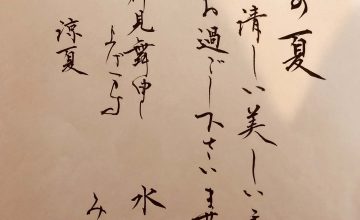 の夏
清しい美しい
お過ごし下さいませ
見舞申し
上げます
涼夏
水
み